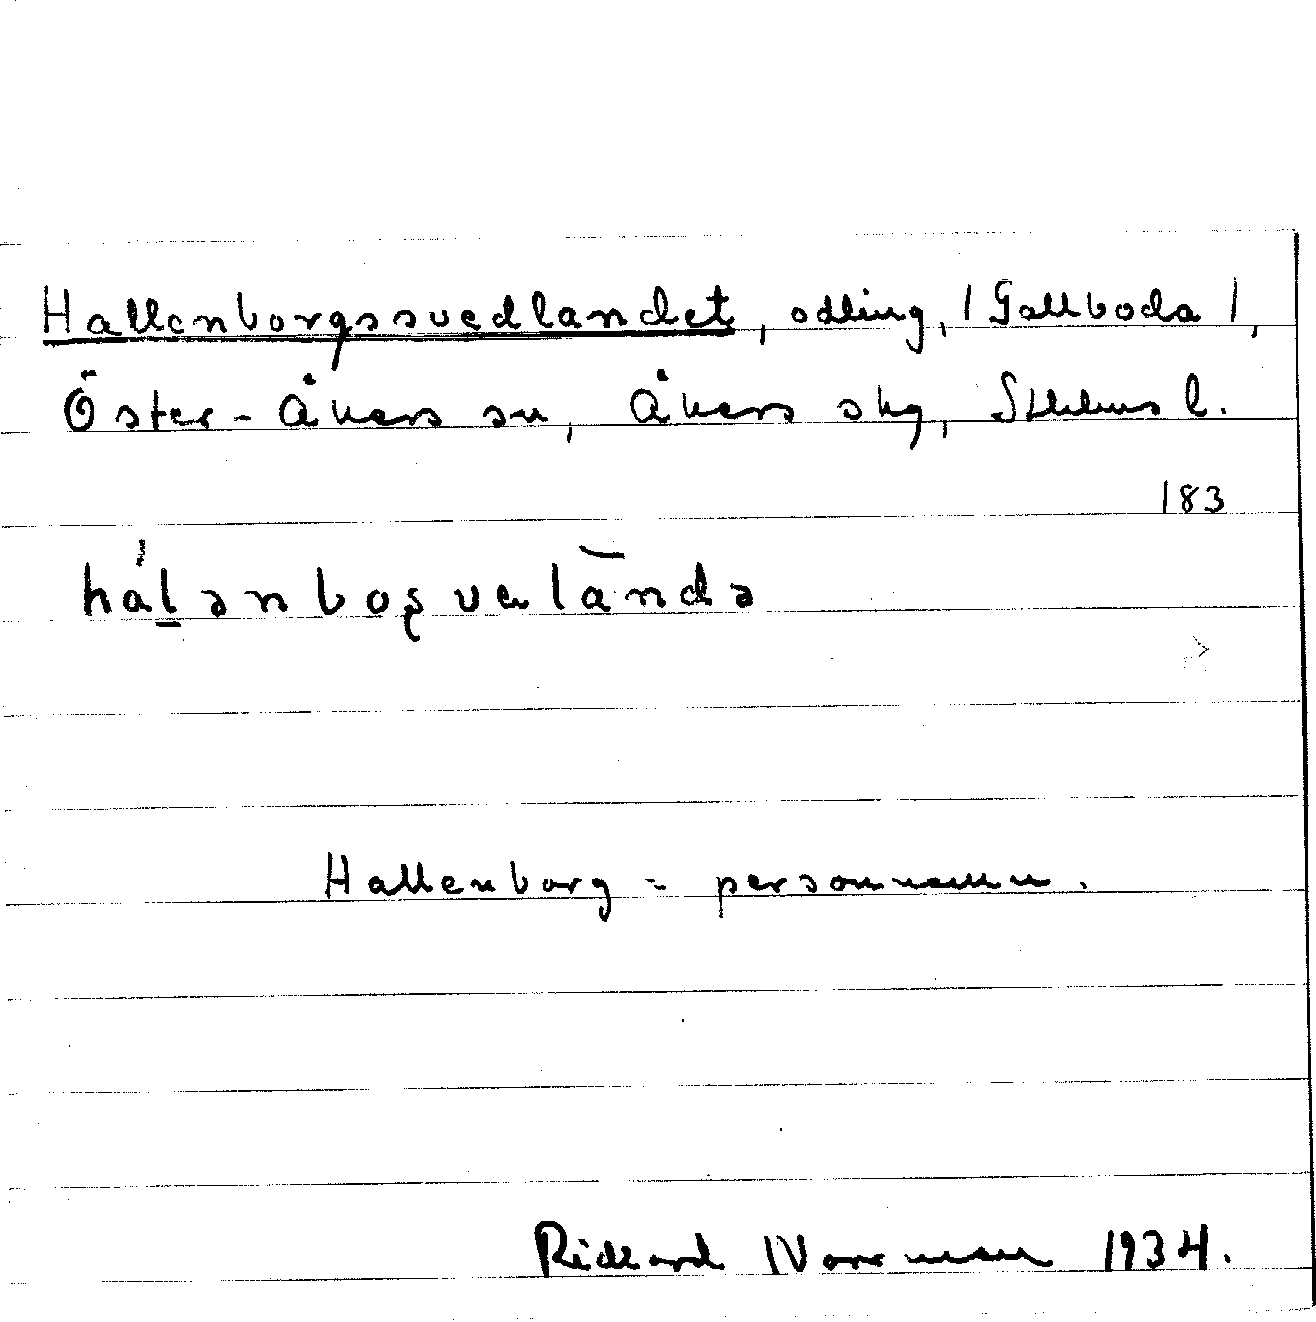 Hallenborgssvedlandet, odling, /Gallboda/,
Öster-Åkers sn, Åkers skg, Sthlms l.
183
Hallenborg = personnamn.
Rickard Norrman 1934.